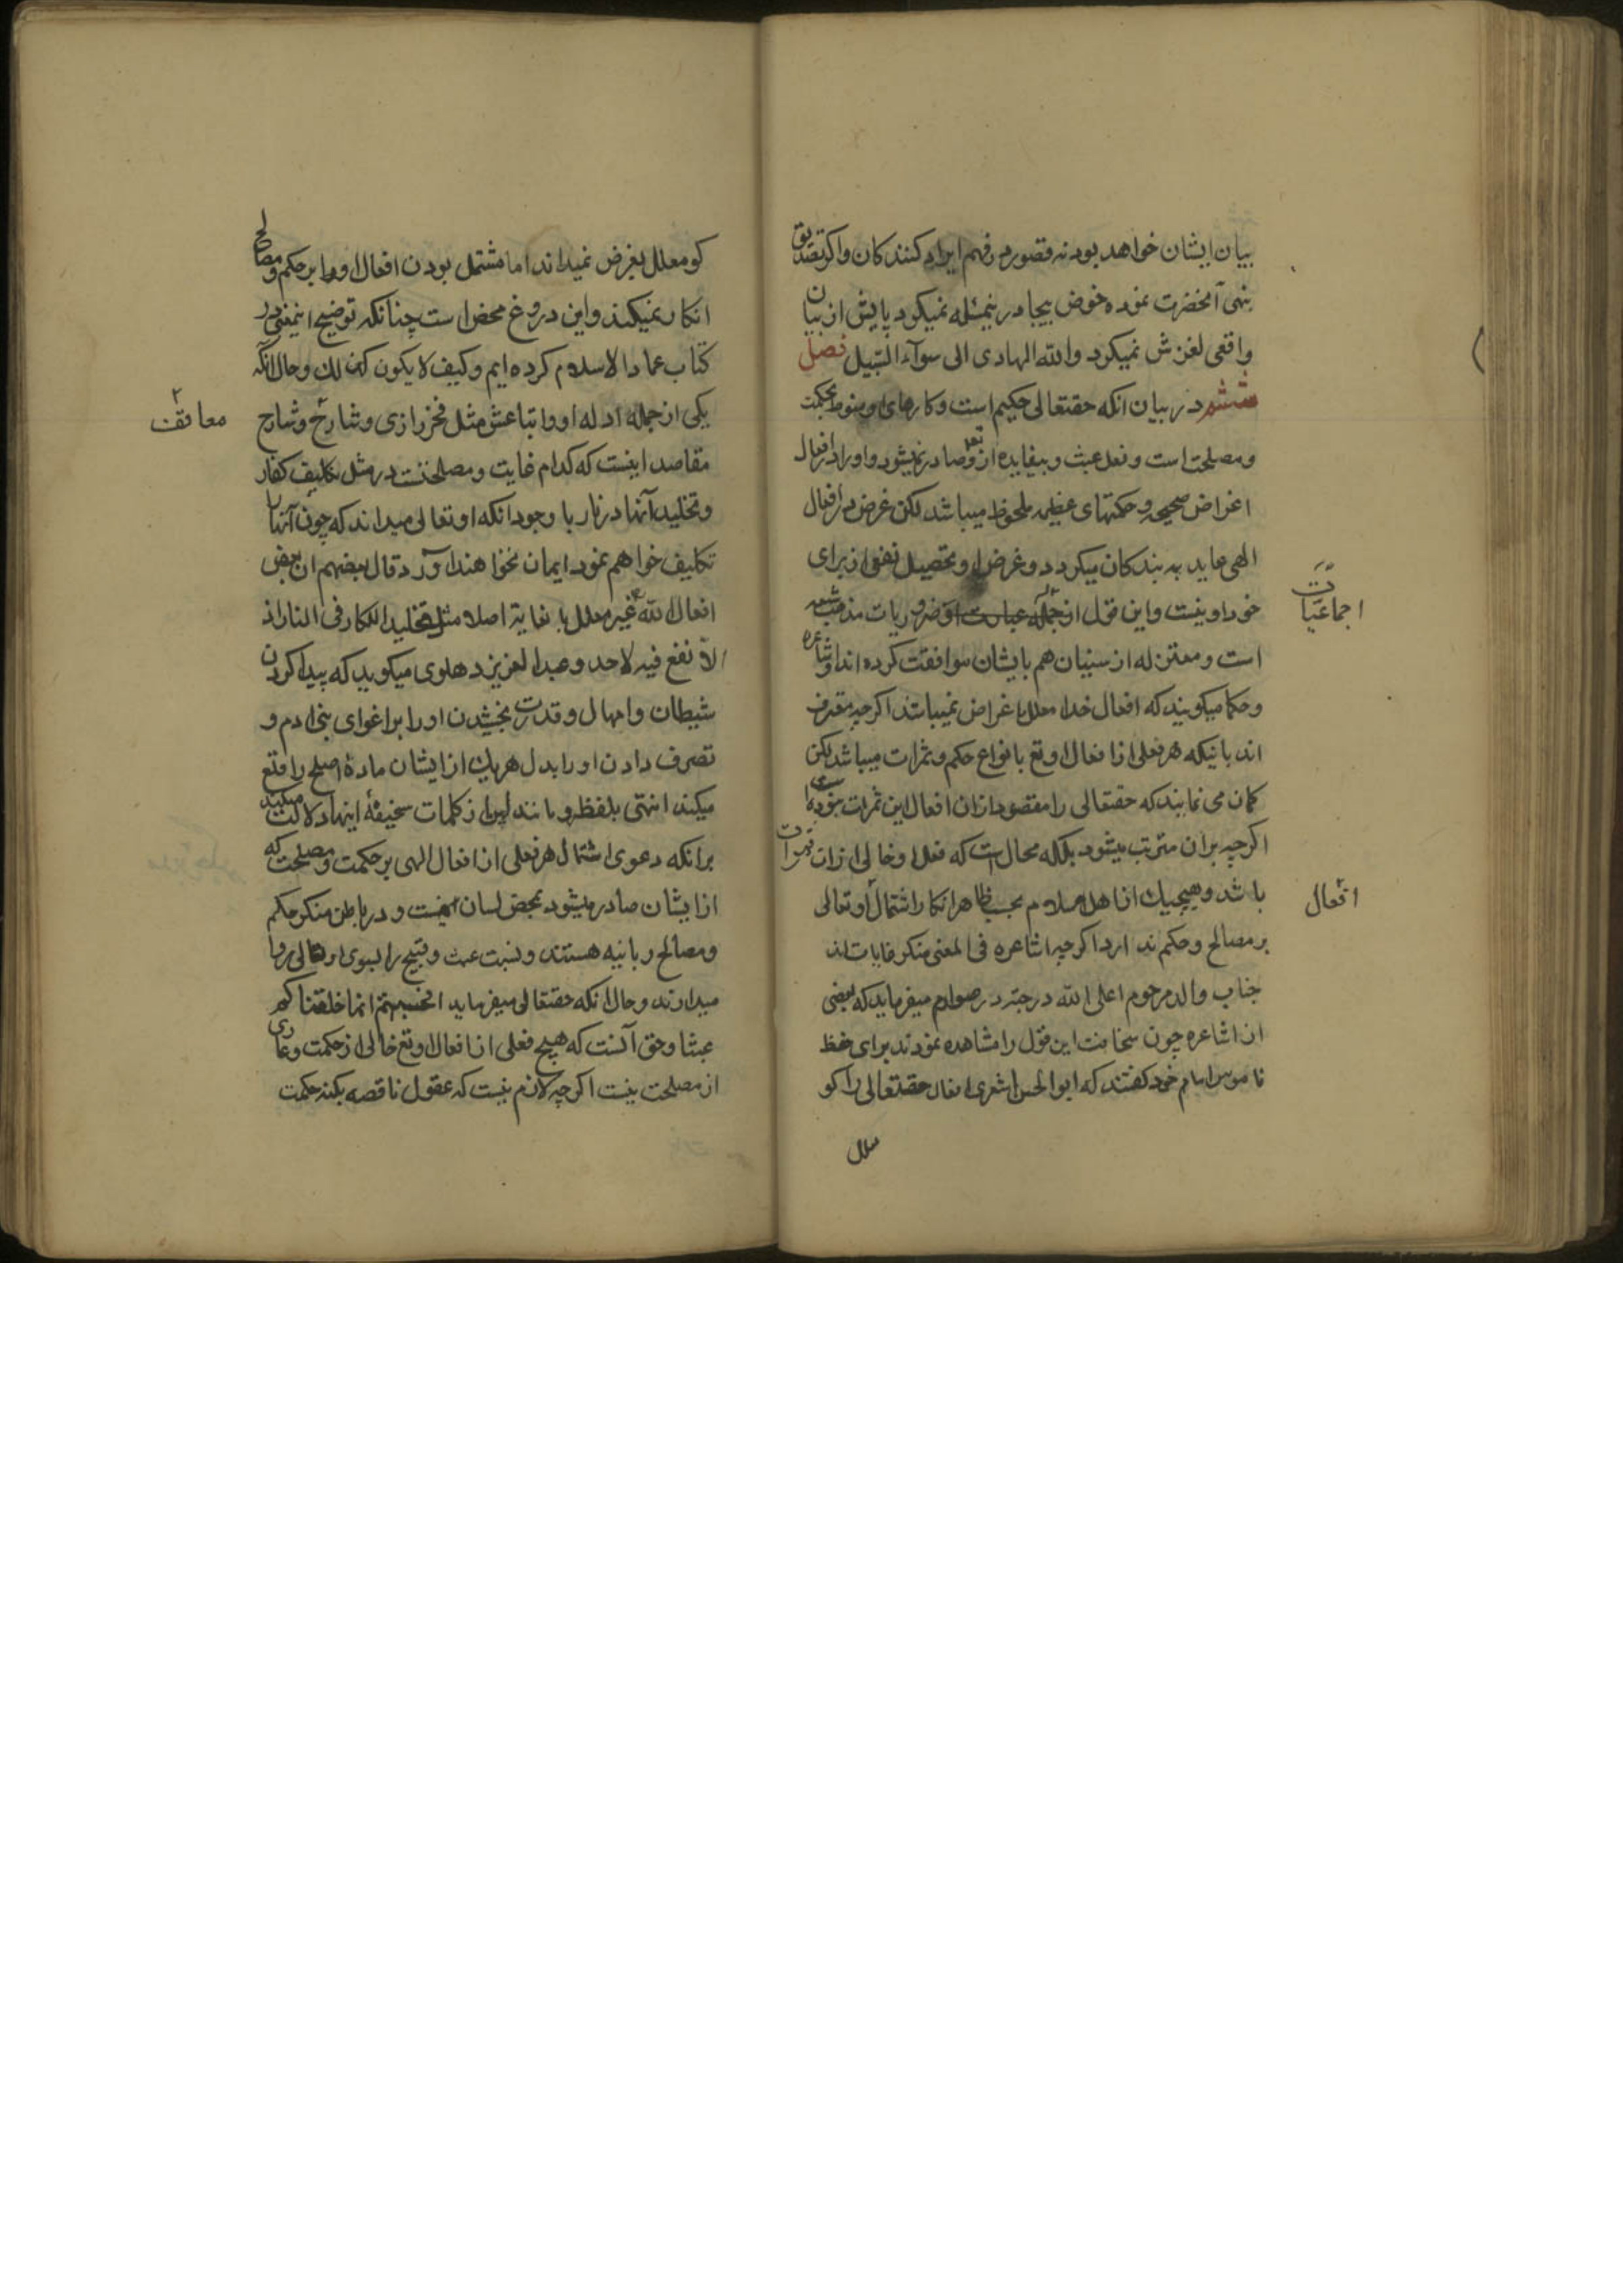 بیان ایشان خواهد بود نه قصور در فهم ایراد کنندکان واکر تصدیق
بنهی آنحضرت نموده خوض بیجا درینمسئله نمیکرد پایش از بیان
واقعی لغزش نمیکرد والله الهادی الی سوآء السّبیل فصل
ششم در بیان انکه حقتعالی حکیم است و کارهای او منوط بحکمت
ومصلحت است و فعل عبث و بیفایده ازو تعالی صادر نمیشود و او را در افعال
اغراض صحیحه و حکمتهای عظیمه ملحوظ میباشد لکن غرض در افعال
الهی عاید به بندکان میکردد و غرض او تحصیل نفع از برای
خود او نیست و این قول از جمله ضروریات مذهب شیعه
است و معتزله از سنیان هم بایشان موافقت کرده اند و اشاعره
و حکما میکویند که افعال خدا معلل باغراض نمیباشد اکرچه معترف
اند باینکه هر فعلی از افعال او تع بانواع حکم و ثمرات میباشد لکن
کمان می نمایند که حقتعالی را مقصود ازان افعال این ثمرات نبوده
اکرچه بران مترتب میشود بلکه محال است که فعل او خالی ازان ثمرات
باشد و هیچیک از اهل اسلام بحسب ظاهر انکار اشتمال او تعالی
بر مصالح و حکم ندارد اکرچه اشاعره فی المعنی منکر غایات اند
جناب والد مرحوم اعلی الله درجته در صوارم میفرماید که بعضی
از اشاعره چون سخافت این قول را مشاهده نمودند برای حفظ
ناموس امام خود کفتند که ابوالحسن اشعری افعال حقتعالی را کو
اجماعیّات
افعال
معلل
کو معلل بغرض نمیداند اما مشتمل بودن افعال او را بر حکم و مصالح
انکار نمیکند و این دروغ محض است چنانکه توضیح اینمعنی در
کتاب عماد الاسلام کرده ایم و کیف لا یکون کذلک و حال آنکه
یکی از جمله ادله او و اتباعش مثل فخر رازی و شارح و شارح
مقاصد اینست که کدام غایت و مصلحتست در مثل تکلیف کفار
و تخلید آنها در نار با وجود انکه او تعالی میداند که چون آنها را
تکلیف خواهم نمود ایمان نخواهند آورد قال بعضهم ان بعض
افعال الله غیر معلل بغایة اصلا مثل تخلید الکفار فی النار اذ
لا نفع فیه لاحد و عبد العزیز دهلوی میکوید که پیدا کردن
شیطان و امهال و قدرت بخشیدن او را بر اغوای بنی ادم و
تصرف دادن او را بدل هر یک از ایشان مادهٔ اصلح را قلع
میکند انتهی بلفظه و مانند این از کلمات سخیفهٔ اینها دلالت میکند
برانکه دعوی اشتمال هر فعلی از افعال الهی بر حکمت و مصلحت که
از ایشان صادر میشود بمحض لسان است و در باطن منکر حکم
و مصالح ربانیه هستند و نسبت عبث و قبیح را بسوی او تعالی روا
میدارند و حال انکه حقتعالی میفرماید افحسبتم انما خلقناکم
عبثا و حق آنست که هیچ فعلی از افعال او تع خالی از حکمت و عاری
از مصلحت نیست اکرچه لازم نیست که عقول ناقصه بکنه حکمت
مواقف